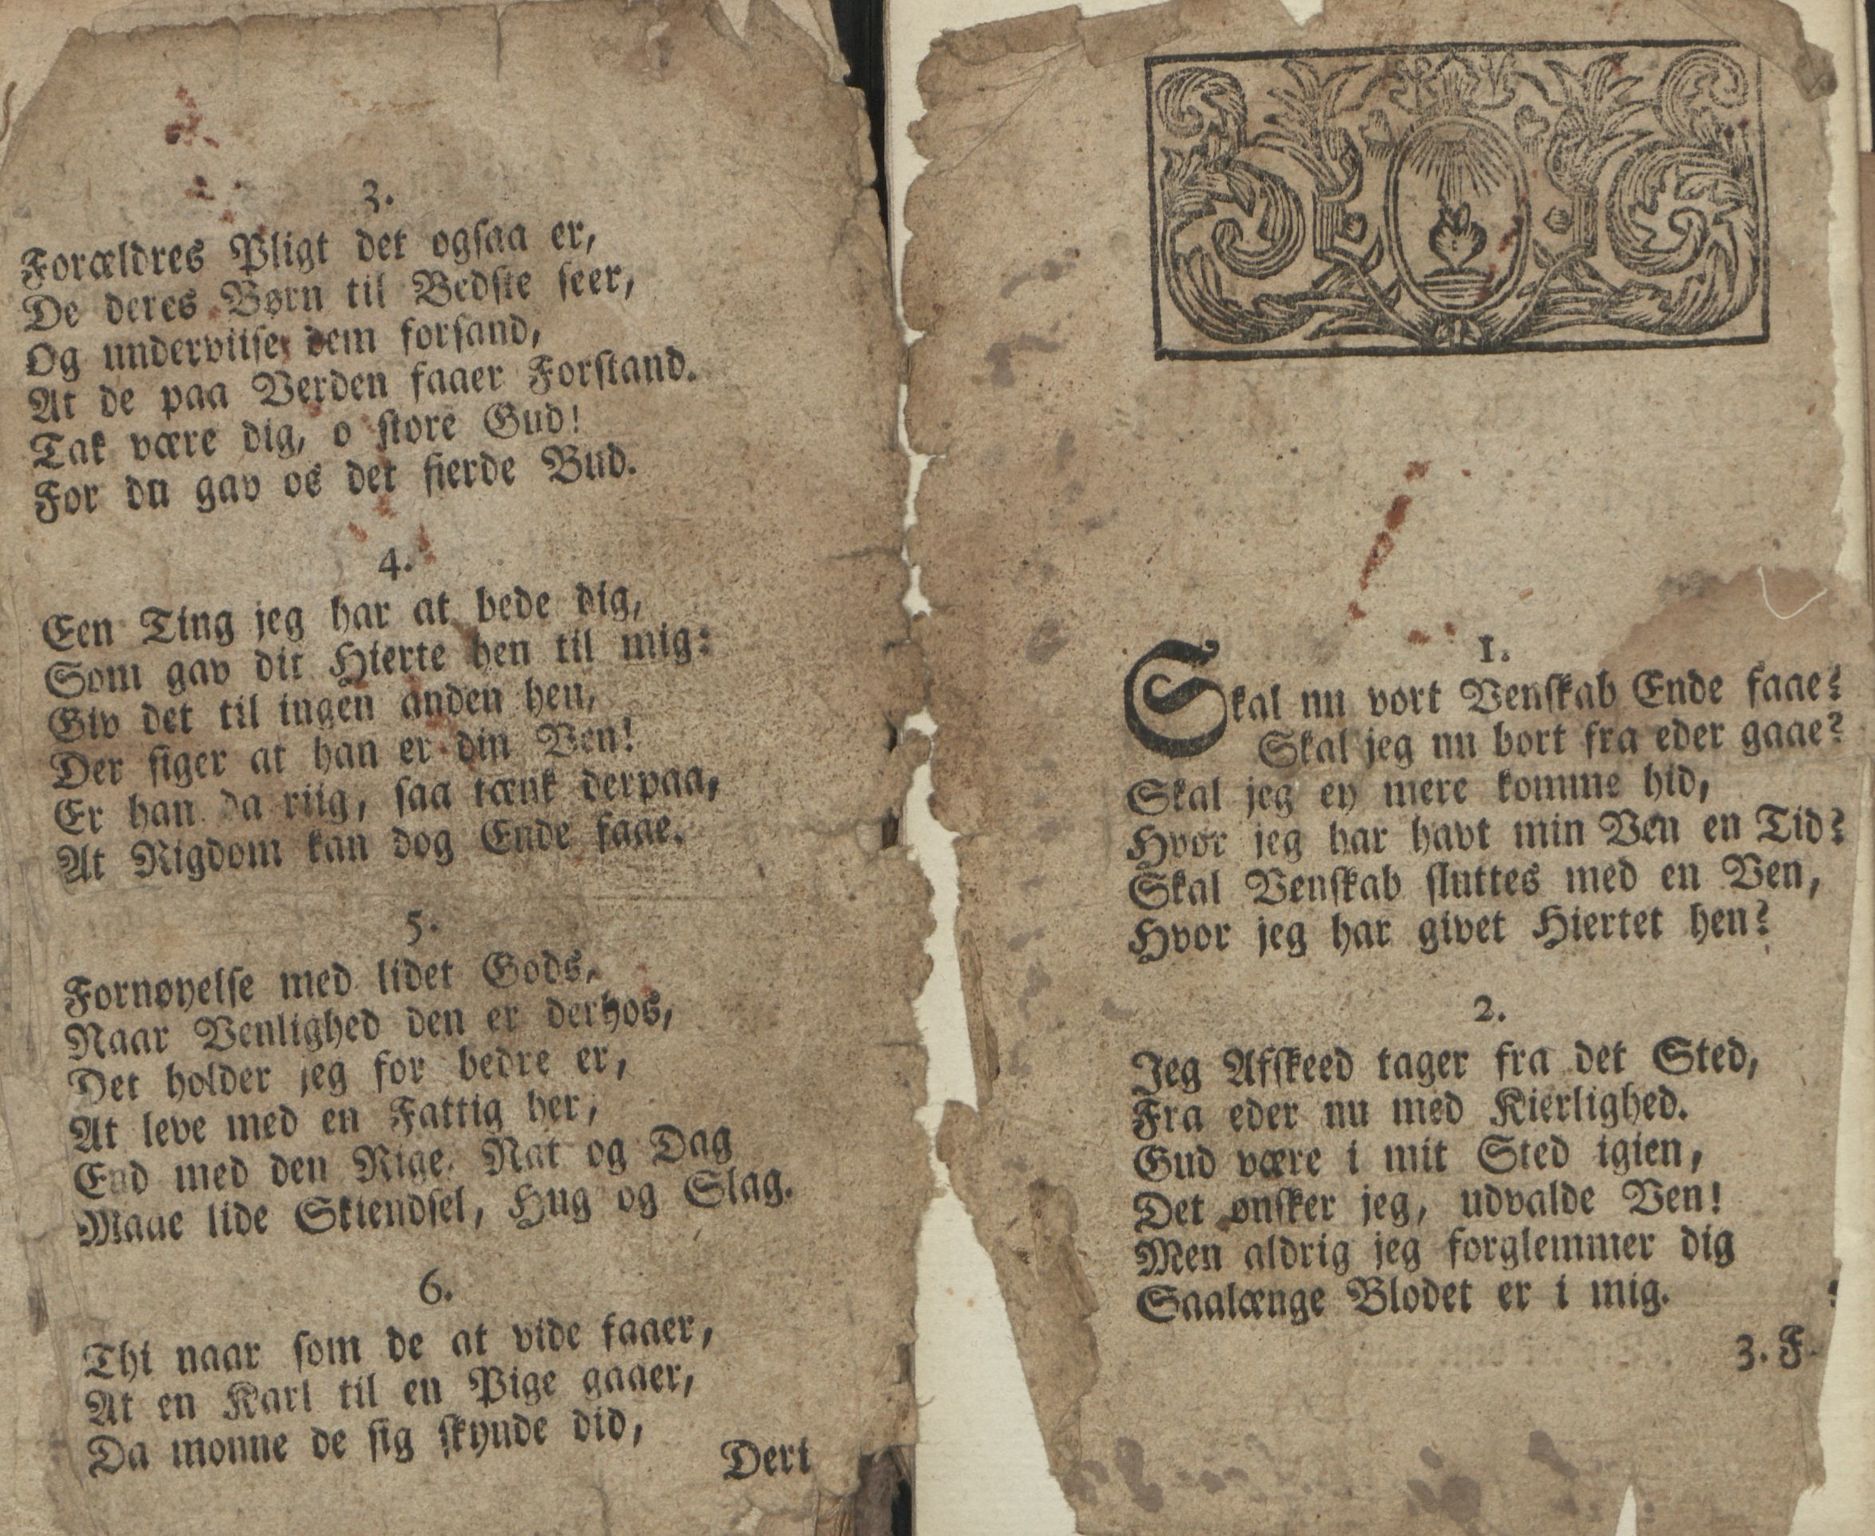 3.
Forældres Pligt det ogsaa er,
De deres Børn til Bedste seer,
Og underviise dem forsand,
At de paa Verden faaer Forstand.
Tak være dig, o store Gud!
For du gav os det fierde Bud.
4.
Een Ting jeg har at bede dig,
Som gav dit Hierte hen til mig:
Giv det til ingen anden hen,
Der siger at han er din Ven!
Er han da riig, saa tænk derpaa,
At Rigdom kan dog Ende faae.
5.
Fornøyelse med lidet Gods,
Naar Venlighed den er derhos,
Det holder jeg for bedre er,
At leve med en Fattig her,
End med den Rige. Nat og Dag
Maae lide Skiendsel, Hug og Slag.
6.
Thi naar som de at vide faaer,
At en Karl til en Pige gaaer,
Da monne de sig skynde did,
Deri
1.
Skal nu vort Venskab Ende faae?
Skal jeg nu bort fra eder gaae?
Skal jeg ey mere komme hid,
Hvor jeg har havt min Ven en Tid?
Skal Venskab sluttes med en Ven,
Hvor jeg har givet Hiertet hen?
2.
Jeg Afskeed tager fra det Sted,
Fra eder nu med Kierlighed.
Gud være i mit Sted igien,
Det ønsker jeg, udvalde Ven!
Men aldrig jeg forglemmer dig
Saalænge Blodet er i mig.
3. F